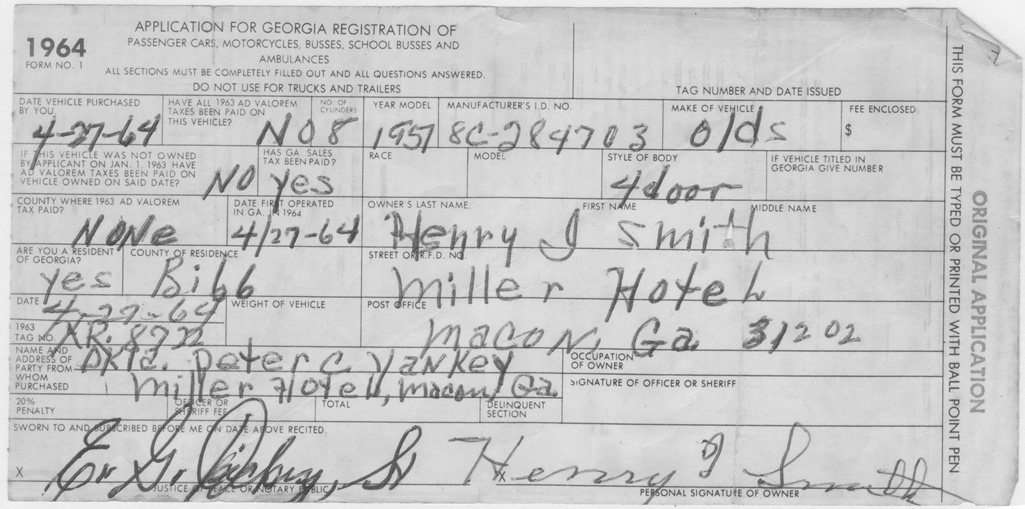 1964
FORM NO. 1
APPLICATION FOR GEORGIA REGISTRATION OF
PASSENGER CARS, MOTORCYCLES, BUSSES, SCHOOL BUSSES AND
AMBULANCES
ALL SECTIONS MUST BE COMPLETELY FILLED OUT AND ALL QUESTIONS ANSWERED.
DO NOT USE FOR TRUCKS AND TRAILERS
TAG NUMBER AND DATE ISSUED
DATE VEHICLE PURCHASED BY YOU. 4-27-64
HAVE ALL 1963 AD VALOREM TAXES BEEN PAID ON THIS VEHICLE? NO
NO. OF CYLINDERS 8
YEAR MODEL 1957
MANUFACTURER'S I.D. NO. 8C-284703
MAKE OF VEHICLE Olds
FEE ENCLOSED $
IF THIS VEHICLE WAS NOT OWNED BY APPLICANT ON JAN. 1, 1963 HAVE AD VALOREM TAXES BEEN PAID ON VEHICLE OWNED ON SAID DATE? NO
HAS GA. SALES TAX BEEN PAID? yes
RACE
MODEL
STYLE OF BODY 4door
IF VEHICLE TITLED IN GEORGIA GIVE NUMBER
COUNTY WHERE 1963 AD VALOREM TAX PAID? NONe
DATE FIRST OPERATED IN GA. IN 1964 4/27-64
OWNER'S LAST NAME FIRST NAME MIDDLE NAME
Henry J Smith
ARE YOU A RESIDENT OF GEORGIA? yes
COUNTY OF RESIDENCE Bibb
STREET OR R.F.D. NO. Miller Hotel
DATE 4-27-64
WEIGHT OF VEHICLE
POST OFFICE Macon, Ga 31202
1963 TAG NO. XR. 8722
NAME AND ADDRESS OF PARTY FROM WHOM PURCHASED
Peter C Yankey
Miller Hotel, Macon, Ga.
OCCUPATION OF OWNER
SIGNATURE OF OFFICER OR SHERIFF
20% PENALTY
OFFICER OR SHERIFF FEE
TOTAL
DELINQUENT SECTION
SWORN TO AND SUBSCRIBED BEFORE ME ON DATE ABOVE RECITED.
X
JUSTICE OF PEACE OR NOTARY PUBLIC
X Henry J Smith
PERSONAL SIGNATURE OF OWNER
THIS FORM MUST BE TYPED OR PRINTED WITH BALL POINT PEN
ORIGINAL APPLICATION